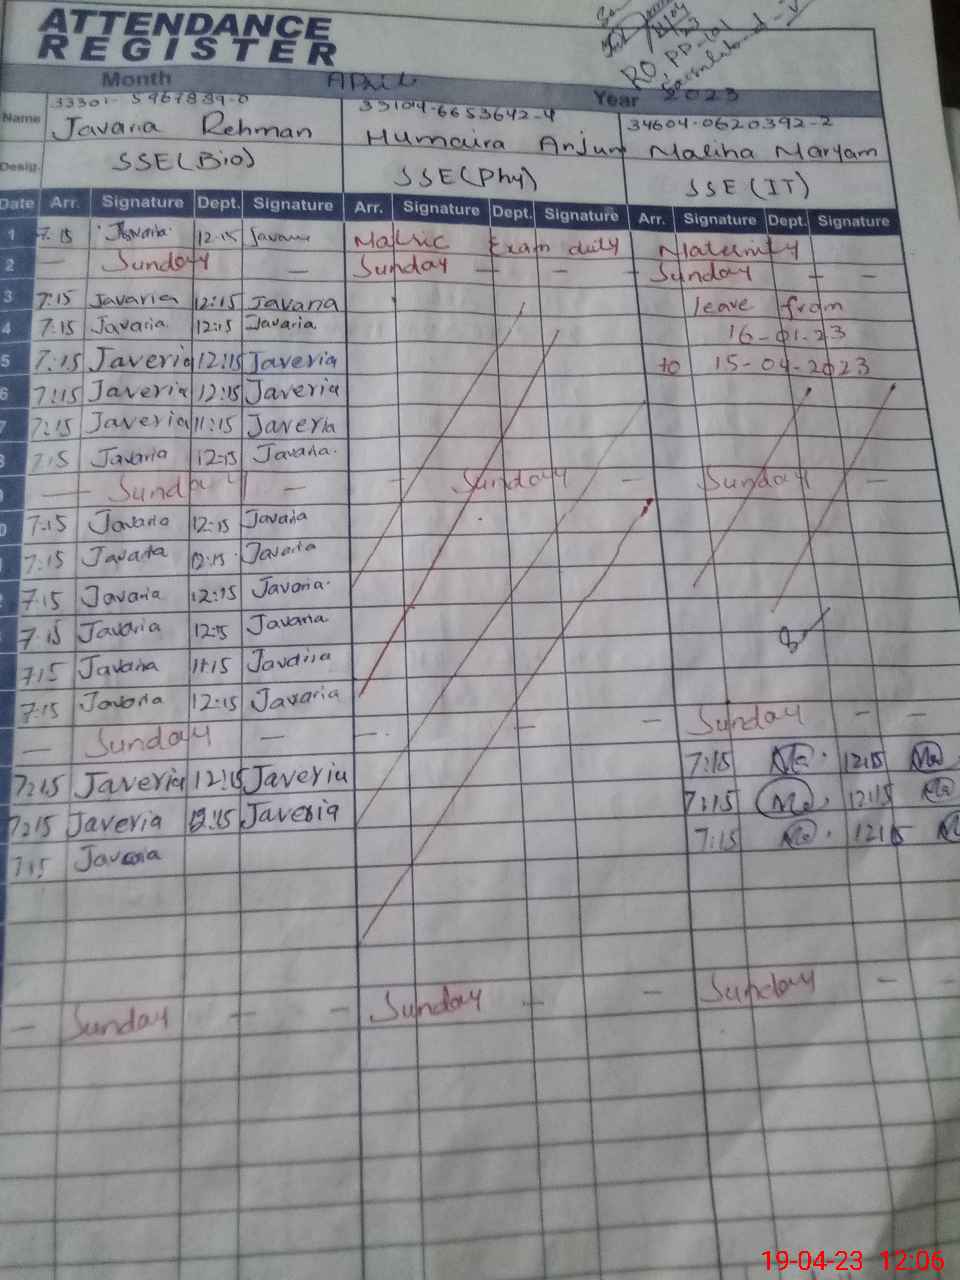 ATTENDANCE
REGISTER
21/04
23
RO, PP-101
Month APRIL Year 2023
33301-5967839-0 33104-6653642-4 34604-0620392-2
Name Javaria Rehman Humaira Anjum Maliha Maryam
Desig. SSE(Bio) SSE(Phy) SSE(IT)
Date Arr. Signature Dept. Signature Arr. Signature Dept. Signature Arr. Signature Dept. Signature
1 7.15 Javaria 12.15 Javaria Matric Exam duty Maternity
2 — Sunday — Sunday — — — Sunday — —
3 7:15 Javaria 12:15 Javaria leave from
4 7:15 Javaria 12:15 Javaria 16-01-23
5 7:15 Javeria 12:15 Javeria to 15-04-2023
6 7:15 Javeria 12:15 Javeria
7:15 Javeria 11:15 Javeria
7:15 Javaria 12:15 Javaria
— Sunday — — Sunday — Sunday —
0 7:15 Javaria 12:15 Javaria
7:15 Javaria 12:15 Javaria
7:15 Javaria 12:15 Javaria
7:15 Javaria 12:15 Javaria
7:15 Javaria 11:15 Javaria
7:15 Javaria 12:15 Javaria
— Sunday — — — — Sunday — —
7:15 Javeria 12:15 Javeria 7:15 Ma 12:15 Ma
7:15 Javeria 12:15 Javeria 7:15 Ma 12:15 Ma
7:15 Javaria 7:15 Ma 12:15 M
— Sunday — — Sunday — — Sunday — —
19-04-23 12:06